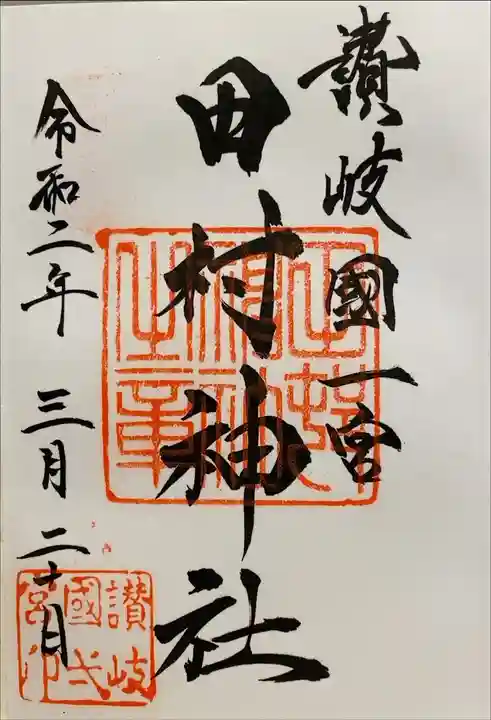 讃岐國一宮
田村神社
令和二年 三月 二十日
讃岐
國弌
宮印